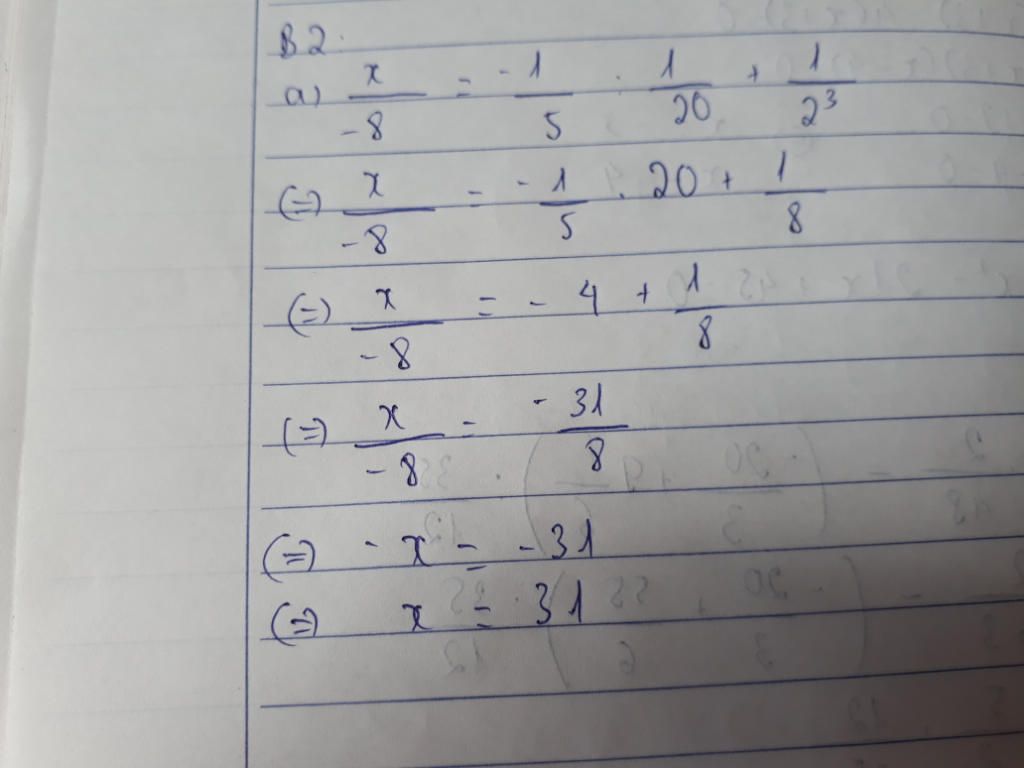 B2.
a) x/-8 = -1/5 : 1/20 + 1/2³
(=) x/-8 = -1/5 . 20 + 1/8
(=) x/-8 = - 4 + 1/8
(=) x/-8 = -31/8
(=) - x = - 31
(=) x = 31